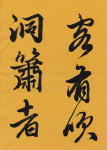 客有吹
洞簫者